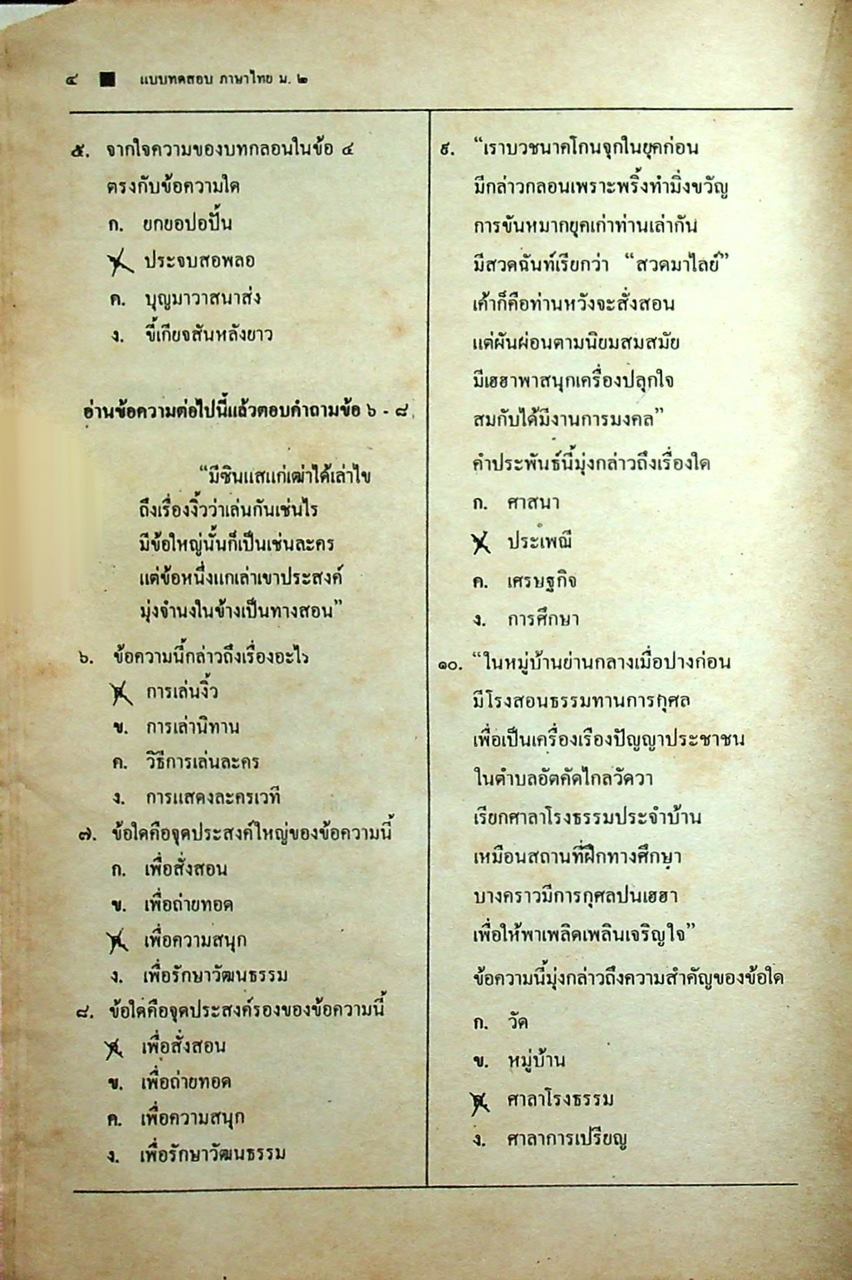 ๔ ■ แบบทดสอบ ภาษาไทย ม. ๒
๕. จากใจความของบทกลอนในข้อ ๔
ตรงกับข้อความใด
ก. ยกยอปอปั้น
ประจบสอพลอ
ค. บุญมาวาสนาส่ง
ง. ขี้เกียจสันหลังยาว
อ่านข้อความต่อไปนี้แล้วตอบคำถามข้อ ๖ - ๘
“มีซินแสแก่เฒ่าได้เล่าไข
ถึงเรื่องงิ้วว่าเล่นกันเช่นไร
มีข้อใหญ่นั้นก็เป็นเช่นละคร
แต่ข้อหนึ่งแกเล่าเขาประสงค์
มุ่งจำนงในข้างเป็นทางสอน”
๖. ข้อความนี้กล่าวถึงเรื่องอะไร
การเล่นงิ้ว
ข. การเล่านิทาน
ค. วิธีการเล่นละคร
ง. การแสดงละครเวที
๗. ข้อใดคือจุดประสงค์ใหญ่ของข้อความนี้
ก. เพื่อสั่งสอน
ข. เพื่อถ่ายทอด
ค. เพื่อความสนุก
ง. เพื่อรักษาวัฒนธรรม
๘. ข้อใดคือจุดประสงค์รองของข้อความนี้
ก. เพื่อสั่งสอน
ข. เพื่อถ่ายทอด
ค. เพื่อความสนุก
ง. เพื่อรักษาวัฒนธรรม
๙. “เราบวชนาคโกนจุกในยุคก่อน
มีกล่าวกลอนเพราะพริ้งทำมิ่งขวัญ
การขันหมากยุคเก่าท่านเล่ากัน
มีสวดฉันท์เรียกว่า “สวดมาไลย์”
เค้าก็คือท่านหวังจะสั่งสอน
แต่ผันผ่อนตามนิยมสมสมัย
มีเฮฮาพาสนุกเครื่องปลุกใจ
สมกับได้มีงานการมงคล”
คำประพันธ์นี้มุ่งกล่าวถึงเรื่องใด
ก. ศาสนา
ประเพณี
ค. เศรษฐกิจ
ง. การศึกษา
๑๐. “ในหมู่บ้านย่านกลางเมื่อปางก่อน
มีโรงสอนธรรมทานการกุศล
เพื่อเป็นเครื่องเรืองปัญญาประชาชน
ในตำบลอัตคัดไกลวัดวา
เรียกศาลาโรงธรรมประจำบ้าน
เหมือนสถานที่ฝึกทางศึกษา
บางคราวมีการกุศลปนเฮฮา
เพื่อให้พาเพลิดเพลินเจริญใจ”
ข้อความนี้มุ่งกล่าวถึงความสำคัญของข้อใด
ก. วัด
ข. หมู่บ้าน
ค. ศาลาโรงธรรม
ง. ศาลาการเปรียญ